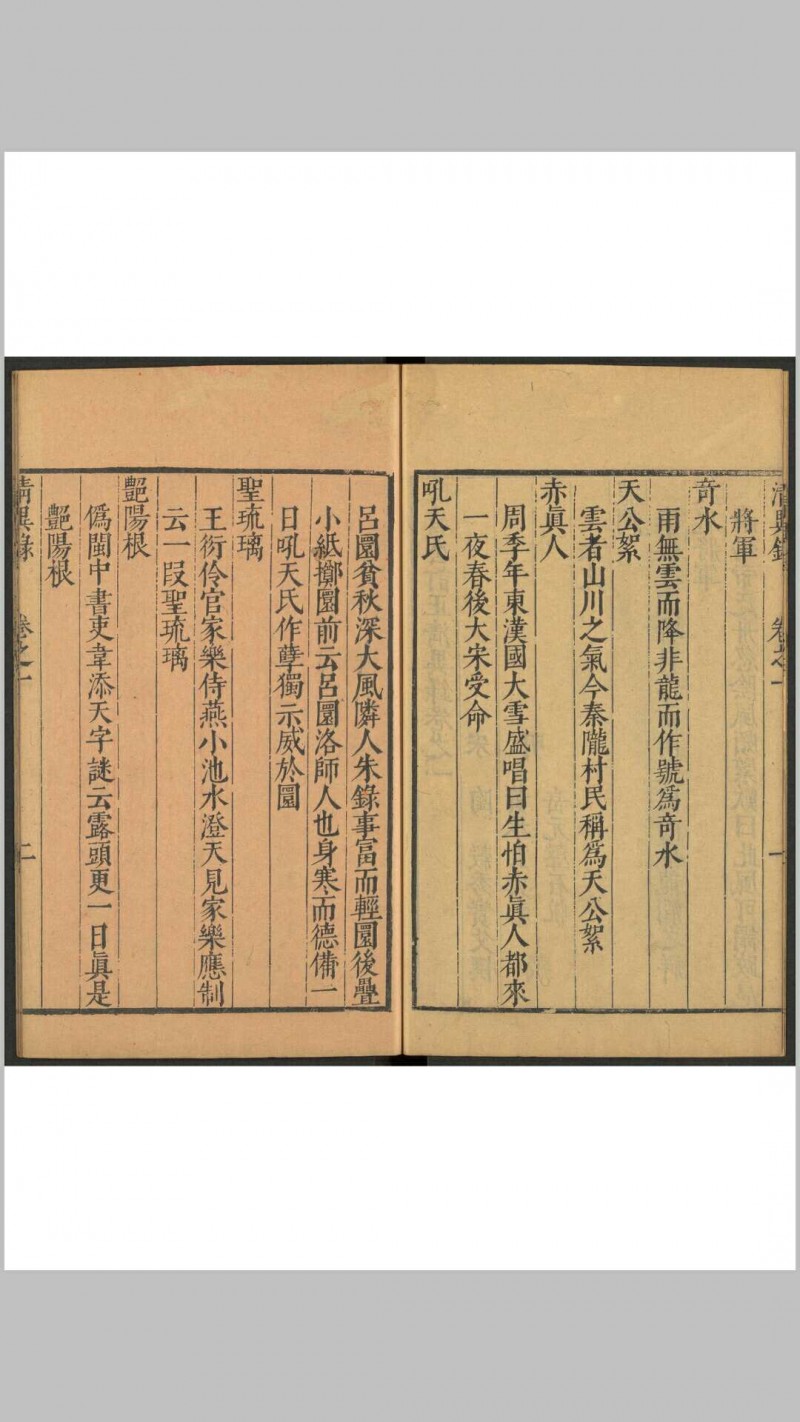 清異錄 卷之一 一
將軍
奇水
雨無雲而降非龍而作號爲奇水
天公絮
雲者山川之氣今秦隴村民稱爲天公絮
赤眞人
周季年東漢國大雪盛唱曰生怕赤眞人都來
一夜春後大宋受命
吼天氏
呂圜貧秋深大風隣人朱錄事富而輕圜後疊
小紙擲圜前云呂圜洛師人也身寒而德備一
日吼天氏作孽獨示威於圜
聖琉璃
王衍伶官家樂侍燕小池水澄天見家樂應制
云一段聖琉璃
艷陽根
僞閩中書吏韋添天字謎云露頭更一日眞是
艷陽根
清異錄 卷之一 二